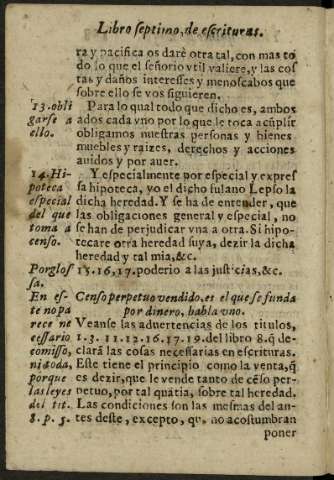 Libro septimo, de escrituras.
ra y pacifica os darè otra tal, con mas to
do lo que el señorio vtil valiere, y las cos
tas y daños interesses y menoscabos que
sobre ello se vos siguieren.
13. obli
garse a
ello.
Para lo qual todo que dicho es, ambos
ados cada vno por lo que le toca acũplir
obligamos nuestras personas y bienes
muebles y raizes, derechos y acciones
auidos y por auer.
14. Hi-
poteca
especial
del que
toma a
censo.
Y especialmente por especial y expres
sa hipoteca, yo el dicho fulano
dicha heredad. Y se ha de entender, que
las obligaciones general y especial, no
se han de perjudicar vna a otra. Si hipo-
tecare otra heredad suya, dezir la dicha
heredad y tal mia, &c.
Por glos
sa.
15. 16. 17. poderio a las justicias, &c.
En es-
te no pa
rece ne
cessario
comisso,
ni toda,
porque
las leyes
del tit.
8. p. 5.
Censo perpetuo vendido, es el que se funda
por dinero, habla vno.
Veanse las aduertencias de los titulos,
1. 3. 11. 12. 16. 17. 19. del libro 8. q̃ de-
clarã las cosas necessarias en escrituras.
Este tiene el principio como la venta, q̃
es dezir, que le vende tanto de cẽso per-
petuo, por tal quãtia, sobre tal heredad.
Las condiciones son las mesmas del an-
tes deste, excepto, que no acostumbran
poner